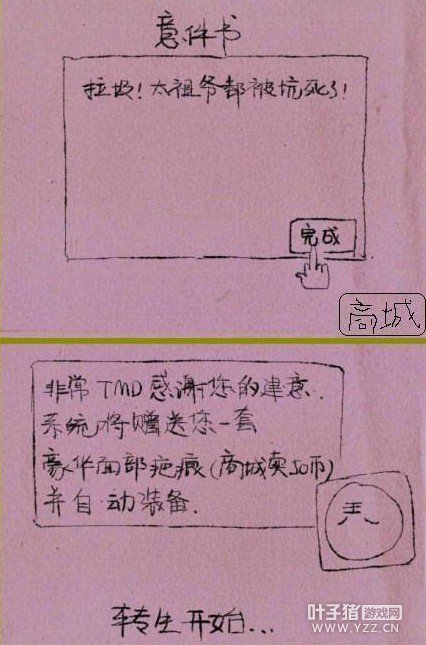 意件书
垃圾!太祖爷都被坑死了!
完成
商城
非常TMD感谢您的建意.
系统将赠送您一套
豪华面部疤痕(商城卖50币)
并自动装备.
王八
转生开始...
叶子猪游戏网
www.YZZ.CN